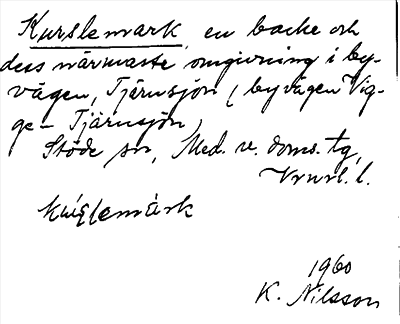 Kurslemark, en backe och
dess närmaste omgivning i by-
vägen, Tjärnsjön (byvägen Vig-
ge - Tjärnsjön)
Stöde sn, Med. v. doms. tg,
l.
1960
K. Nilsson